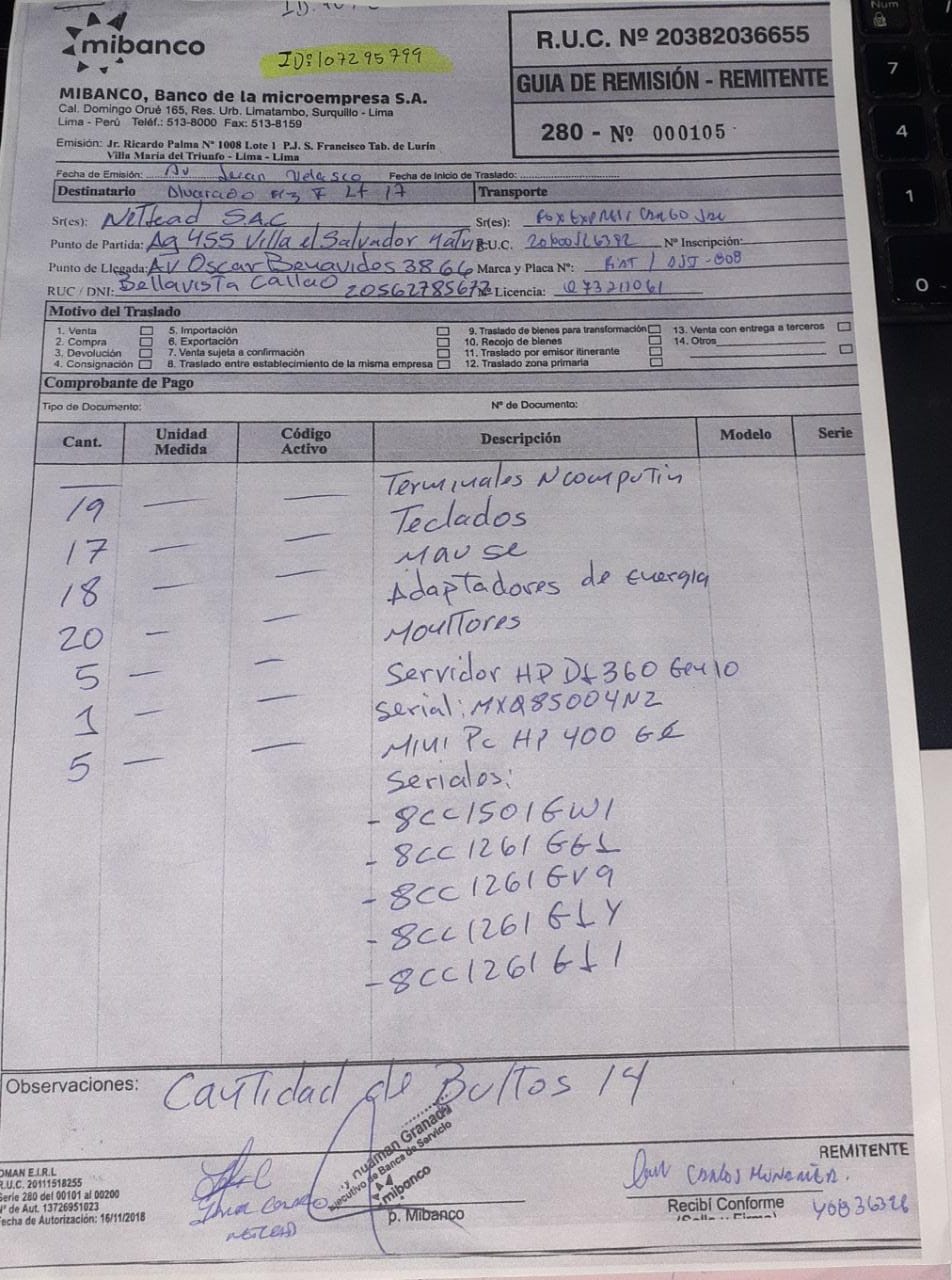 mibanco
ID: 107295799
R.U.C. Nº 20382036655
GUIA DE REMISIÓN - REMITENTE
280 - Nº 000105
MIBANCO, Banco de la microempresa S.A.
Cal. Domingo Orué 165, Res. Urb. Limatambo, Surquillo - Lima
Lima - Perú Teléf.: 513-8000 Fax: 513-8159
Emisión: Jr. Ricardo Palma Nº 1008 Lote 1 P.J. S. Francisco Tab. de Lurín
Villa María del Triunfo - Lima - Lima
Fecha de Emisión: Av Juan Velasco Fecha de Inicio de Traslado:
Destinatario Alvarado Mz F Lt 17 Transporte
Sr(es): Netlead SAC Sr(es): FOX EXPRESS CARGO
Punto de Partida: Ag 455 Villa el Salvador R.U.C. Nº Inscripción:
Punto de Llegada: AV Oscar Benavides 3866 Marca y Placa Nº:
RUC / DNI: Bellavista Callao Nº Licencia: Q73211061
Motivo del Traslado
1. Venta 5. Importación 9. Traslado de bienes para transformación 13. Venta con entrega a terceros
2. Compra 6. Exportación 10. Recojo de bienes 14. Otros
3. Devolución 7. Venta sujeta a confirmación 11. Traslado por emisor itinerante
4. Consignación 8. Traslado entre establecimiento de la misma empresa 12. Traslado zona primaria
Comprobante de Pago
Tipo de Documento: Nº de Documento:
Cant. Unidad Medida Código Activo Descripción Modelo Serie
Terminales Ncomputin
19 Teclados
17 Mause
18 Adaptadores de energia
20 Monitores
5 Servidor HP DL360 Gen10
1 Serial: MXQ85004N2
5 Mini Pc HP 400 G6
Seriales:
- 8CC1501GW1
- 8CC1261GG1
- 8CC1261GV9
- 8CC1261G1Y
- 8CC1261G11
Observaciones: Cantidad de Bultos 14
Huaman Granad
Ejecutivo de Banca de Servicio
mibanco
REMITENTE
OMAN E.I.R.L
R.U.C. 20111518255
Serie 280 del 00101 al 00200
Nº de Aut. 13726951023
Fecha de Autorización: 16/11/2018
NETLEAD
p. Mibanco
Recibí Conforme
(Sello y Firma)
Num
7
4
1
0